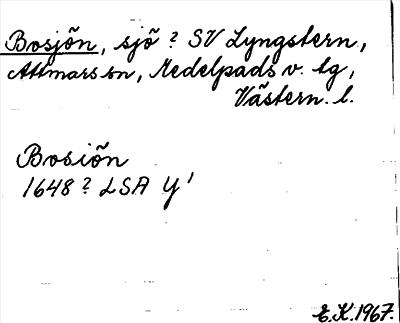 Bosjön, sjö ? SV Lyngstern,
Attmars sn, Medelpads v. tg,
Västern. l.
Bosiön
1648 ? LSA Y 1
E.K. 1967.